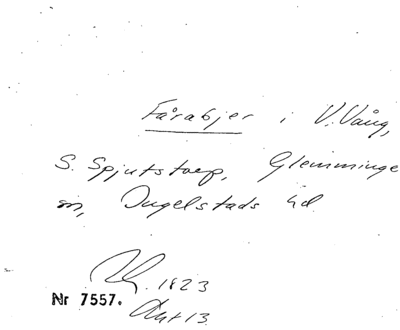 Fårabjer i V. Vång,
S. Spjutstorp, Glemminge
sn, Ingelstads hd
1823
Nr 7557. Akt 13.